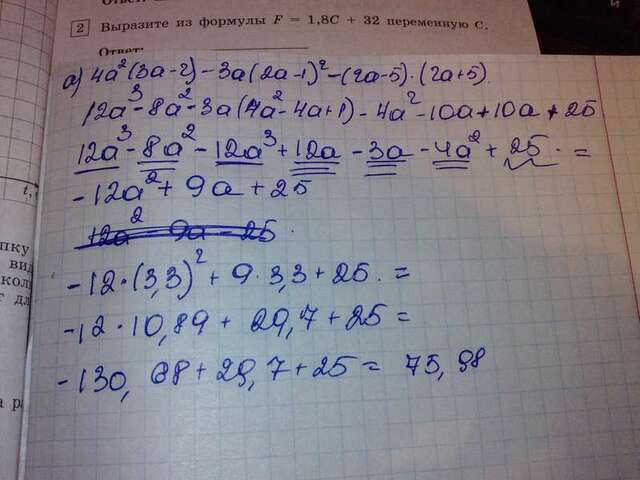 Ответ:
2 Выразите из формулы F = 1,8C + 32 переменную C.
Ответ:
а) 4a²(3a-2) - 3a(2a-1)² - (2a-5)·(2a+5).
12a³ - 8a² - 3a(4a² - 4a + 1) - 4a² - 10a + 10a + 25
12a³ - 8a² - 12a³ + 12a - 3a - 4a² + 25. =
- 12a² + 9a + 25
+12a² - 9a - 25.
-12·(3,3)² + 9·3,3 + 25. =
-12·10,89 + 29,7 + 25 =
-130,68 + 29,7 + 25 = 75,98
t,
пку
вид
кол
т дл